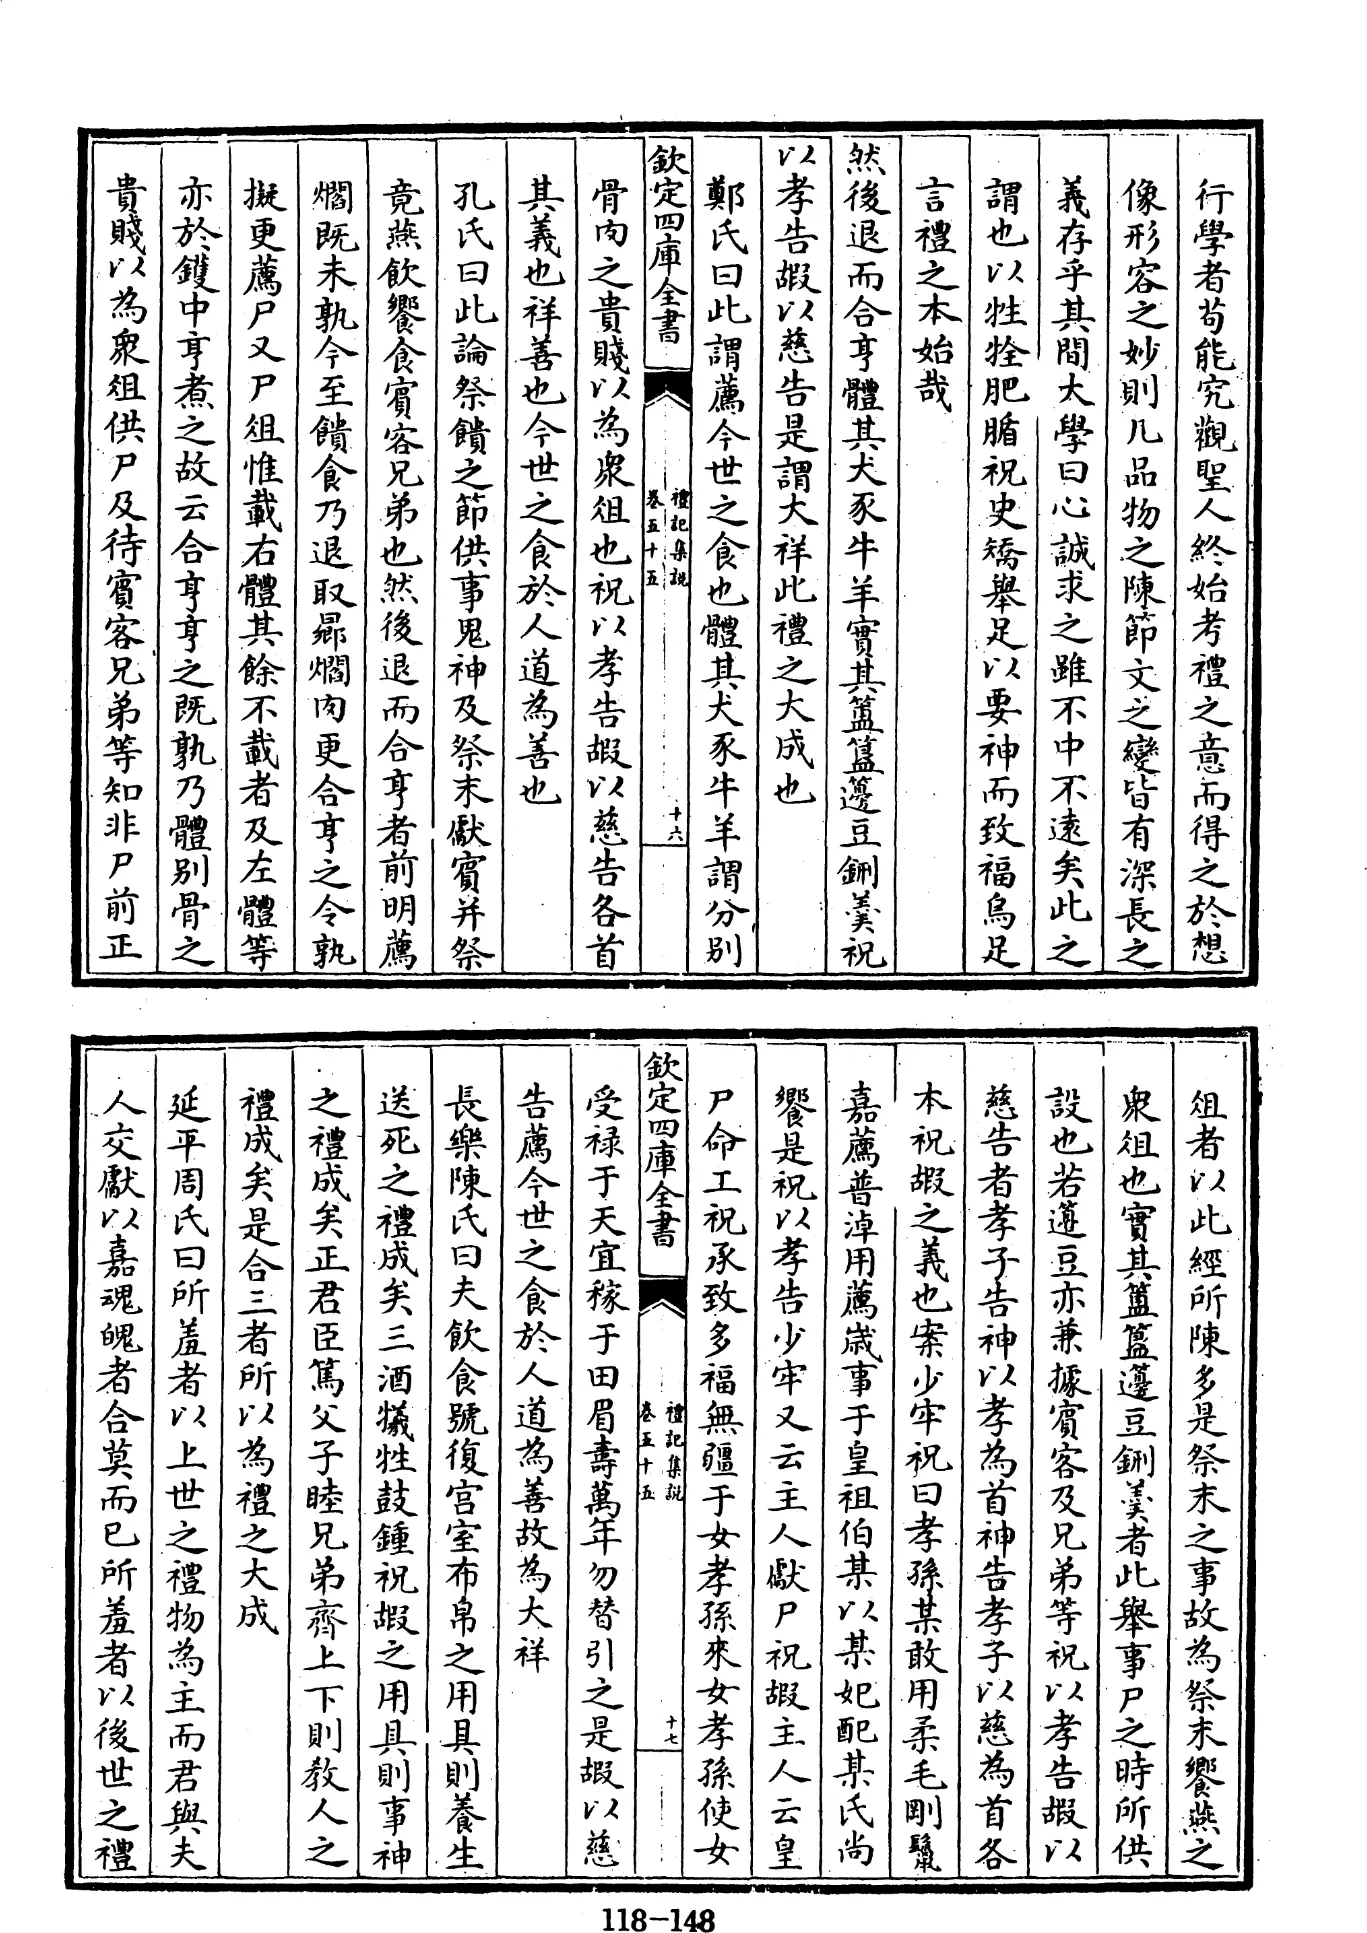 行學者苟能究觀聖人終始考禮之意而得之於想
像形容之妙則凡品物之陳節文之變皆有深長之
義存乎其間大學曰心誠求之雖不中不遠矣此之
謂也以牲牷肥腯祝史矯舉足以要神而致福烏足
言禮之本始哉
然後退而合亨體其犬豕牛羊實其簠簋籩豆鉶羹祝
以孝告嘏以慈告是謂大祥此禮之大成也
鄭氏曰此謂薦今世之食也體其犬豕牛羊謂分別
欽定四庫全書
禮記集說
卷五十五
十六
骨肉之貴賤以為衆俎也祝以孝告嘏以慈告各首
其義也祥善也今世之食於人道為善也
孔氏曰此論祭饋之節供事鬼神及祭末獻賓并祭
竟燕飲饗食賓客兄弟也然後退而合亨者前明薦
爓既未孰今至饋食乃退取曏爓肉更合亨之令孰
擬更薦尸又尸俎惟載右體其餘不載者及左體等
亦於鑊中亨煮之故云合亨亨之既孰乃體別骨之
貴賤以為衆俎供尸及待賓客兄弟等知非尸前正
俎者以此經所陳多是祭末之事故為祭末饗燕之
衆俎也實其簠簋籩豆鉶羹者此舉事尸之時所供
設也若籩豆亦兼據賓客及兄弟等祝以孝告嘏以
慈告者孝子告神以孝為首神告孝子以慈為首各
本祝嘏之義也案少牢祝曰孝孫某敢用柔毛剛鬛
嘉薦普淖用薦歲事于皇祖伯某以某妃配某氏尚
饗是祝以孝告少牢又云主人獻尸祝嘏主人云皇
尸命工祝承致多福無疆于女孝孫來女孝孫使女
欽定四庫全書
禮記集說
卷五十五
十七
受祿于天宜稼于田眉壽萬年勿替引之是嘏以慈
告薦今世之食於人道為善故為大祥
長樂陳氏曰夫飲食號復宮室布帛之用具則養生
送死之禮成矣三酒犧牲鼓鍾祝嘏之用具則事神
之禮成矣正君臣篤父子睦兄弟齊上下則教人之
禮成矣是合三者所以為禮之大成
延平周氏曰所羞者以上世之禮物為主而君與夫
人交獻以嘉魂魄者合莫而已所羞者以後世之禮
118-148